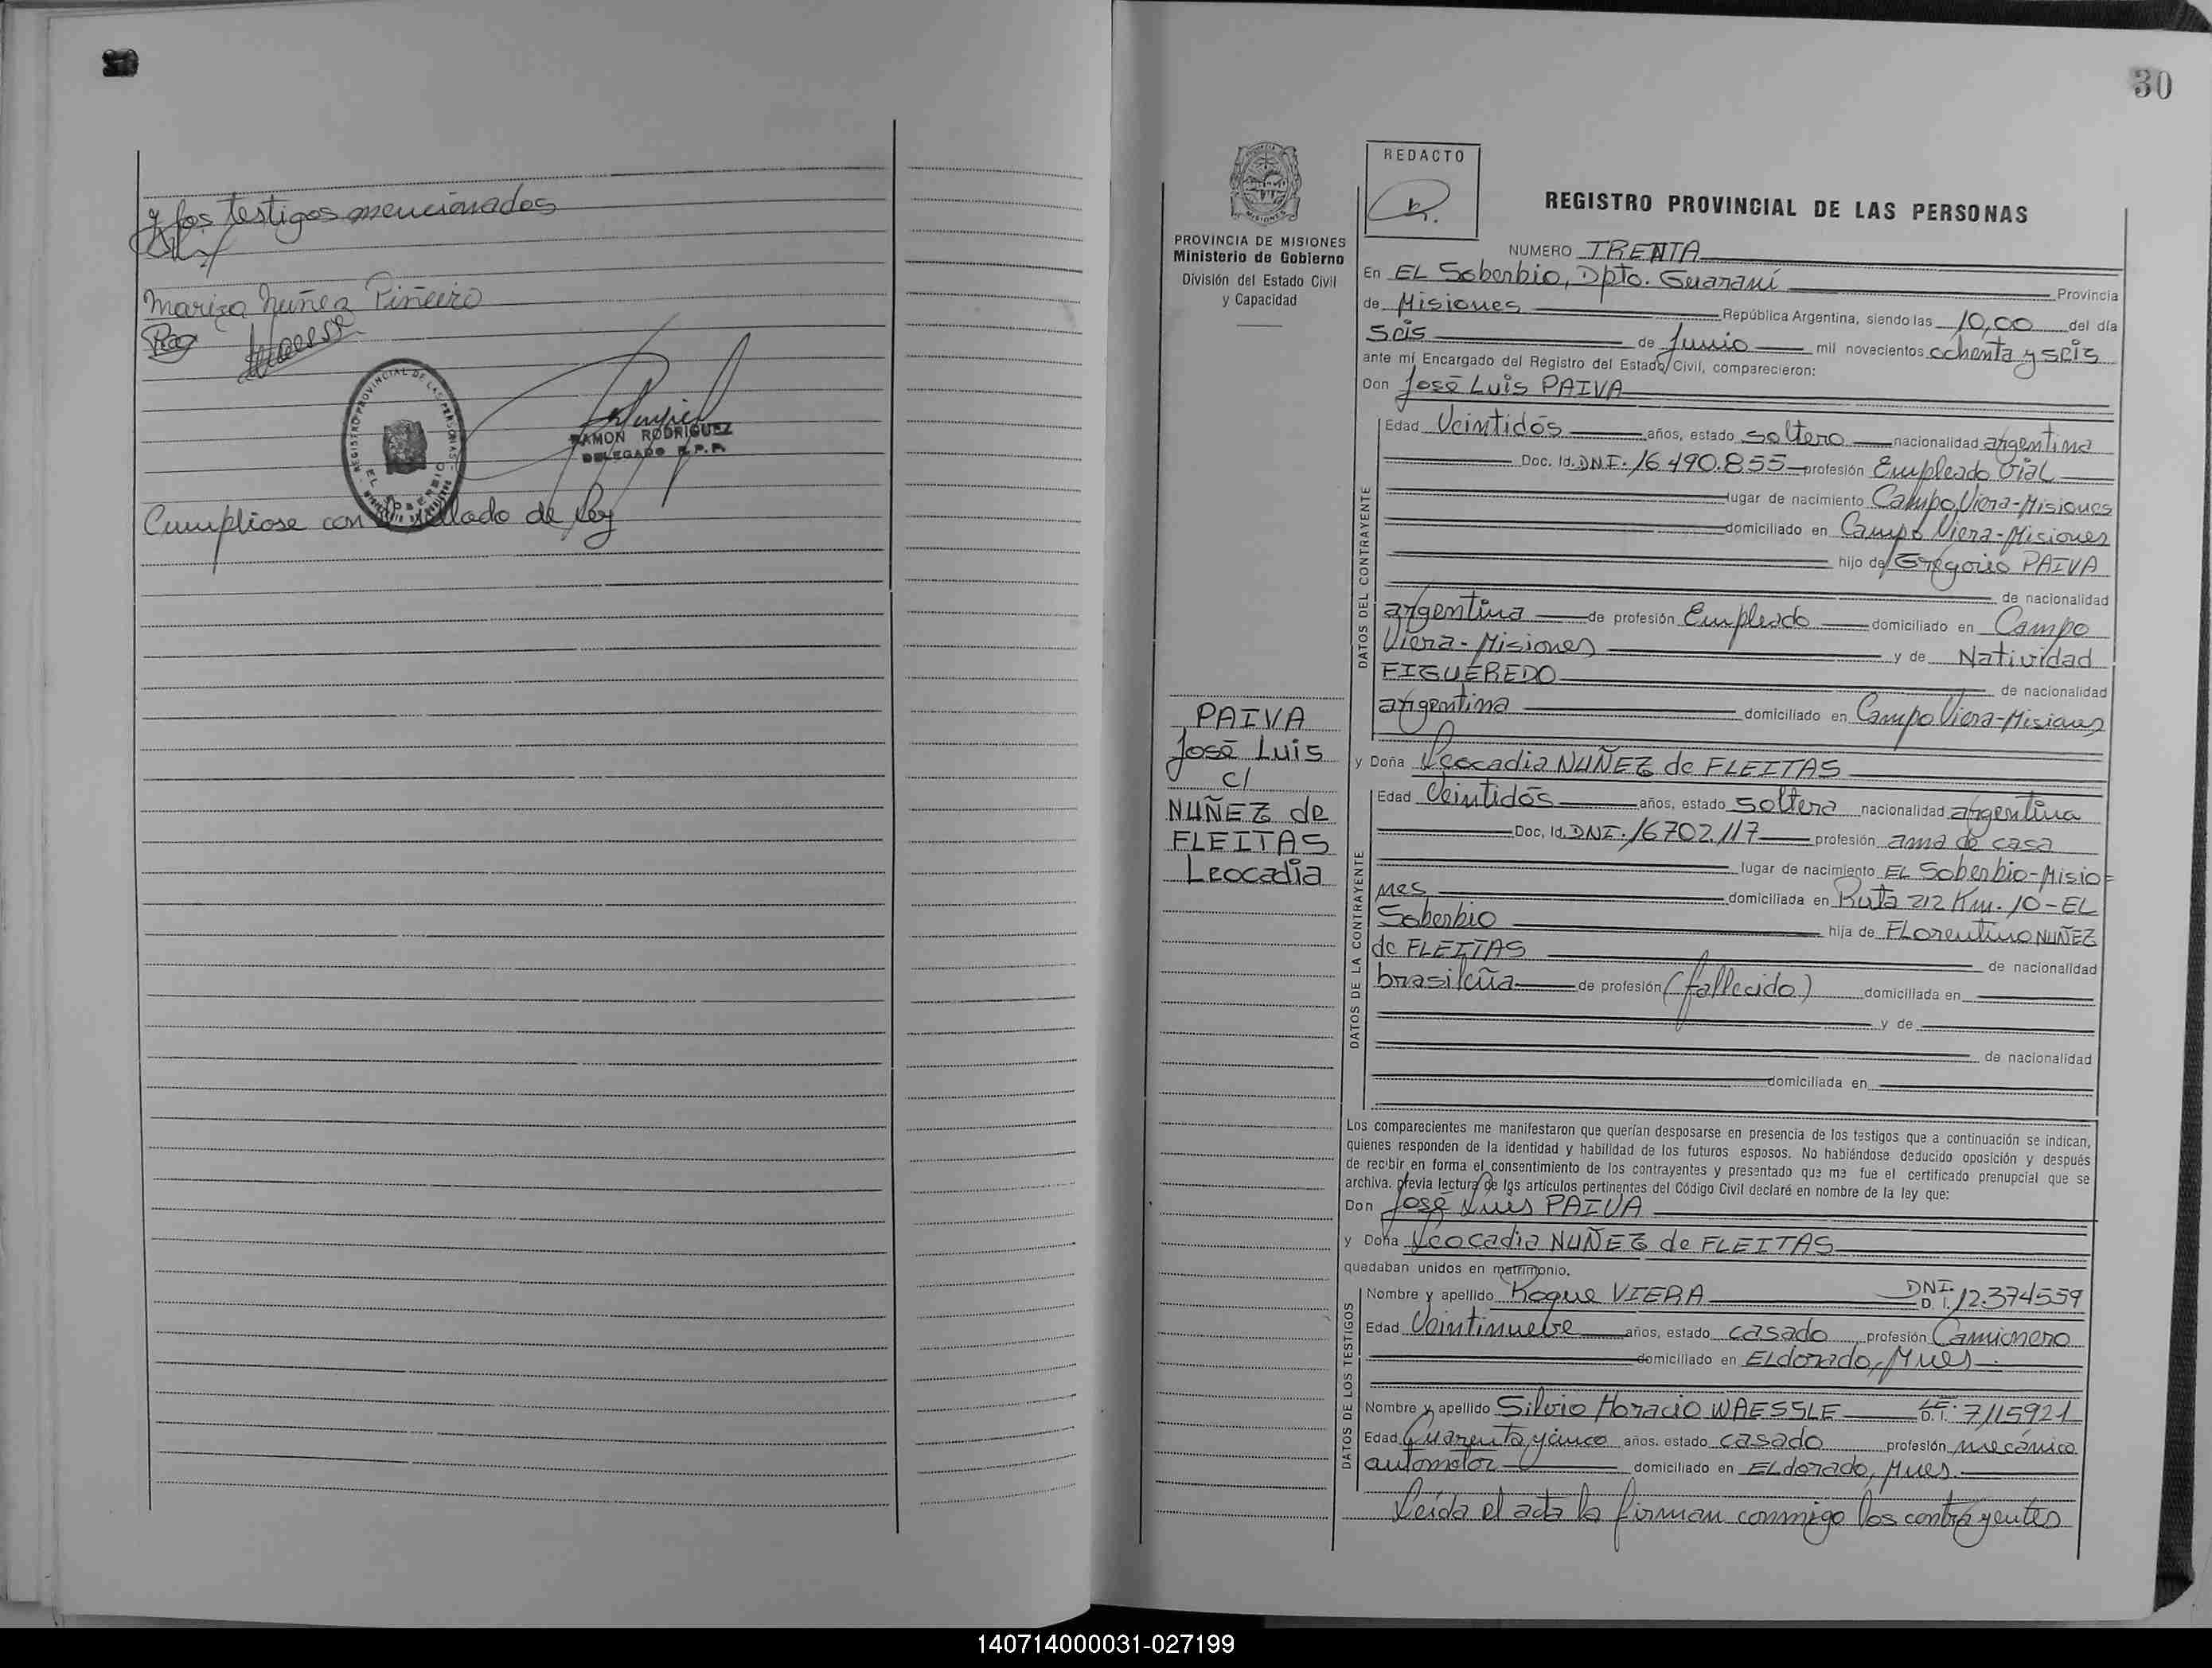 y los testigos mencionados
Mariza Nuñez Piñeiro
REGISTRO PROVINCIAL DE LAS PERSONAS
EL SOBERBIO
RAMON RODRIGUEZ
DELEGADO R.P.P.
Cumpliose con sellado de ley
30
REDACTO
PROVINCIA DE MISIONES
Ministerio de Gobierno
División del Estado Civil
y Capacidad
REGISTRO PROVINCIAL DE LAS PERSONAS
NUMERO TREINTA
En EL Soberbio, Dpto. Guaraní Provincia
de Misiones República Argentina, siendo las 10,00 del día
seis de Junio mil novecientos ochenta y seis
ante mí Encargado del Registro del Estado Civil, comparecieron:
Don José Luis PAIVA
DATOS DEL CONTRAYENTE
Edad Veintidós años, estado soltero nacionalidad argentina
Doc. Id. DNI. 16.490.855 profesión Empleado Vial
lugar de nacimiento Campo Viera-Misiones
domiciliado en Campo Viera-Misiones
hijo de Gregorio PAIVA
de nacionalidad
argentina de profesión Empleado domiciliado en Campo
Viera-Misiones y de Natividad
FIGUEREDO de nacionalidad
argentina domiciliado en Campo Viera-Misiones
PAIVA
José Luis
c/
NUÑEZ de
FLEITAS
Leocadia
y Doña Leocadia NUÑEZ de FLEITAS
DATOS DE LA CONTRAYENTE
Edad Veintidós años, estado soltera nacionalidad argentina
Doc. Id. DNI. 16.702.117 profesión ama de casa
lugar de nacimiento EL Soberbio-Misio=
nes domiciliada en Ruta 212 Km. 10-EL
Soberbio hija de Florentino NUÑEZ
de FLEITAS de nacionalidad
brasileña de profesión (fallecido) domiciliada en
y de
de nacionalidad
domiciliada en
Los comparecientes me manifestaron que querían desposarse en presencia de los testigos que a continuación se indican,
quienes responden de la identidad y habilidad de los futuros esposos. No habiéndose deducido oposición y después
de recibir en forma el consentimiento de los contrayentes y presentado que me fue el certificado prenupcial que se
archiva. previa lectura de los artículos pertinentes del Código Civil declaré en nombre de la ley que:
Don José Luis PAIVA
y Doña Leocadia NUÑEZ de FLEITAS
quedaban unidos en matrimonio.
DATOS DE LOS TESTIGOS
Nombre y apellido Roque VIERA DNI. D. I. 12.374559
Edad Veintinueve años, estado casado profesión Camionero
domiciliado en Eldorado, Mnes.
Nombre y apellido Silvio Horacio WAESSLE LE. D. I. 7115921
Edad Cuarenta y cinco años. estado casado profesión mecánico
automotor domiciliado en Eldorado, Mnes.
Leída el acta la firman conmigo los contrayentes
140714000031-027199